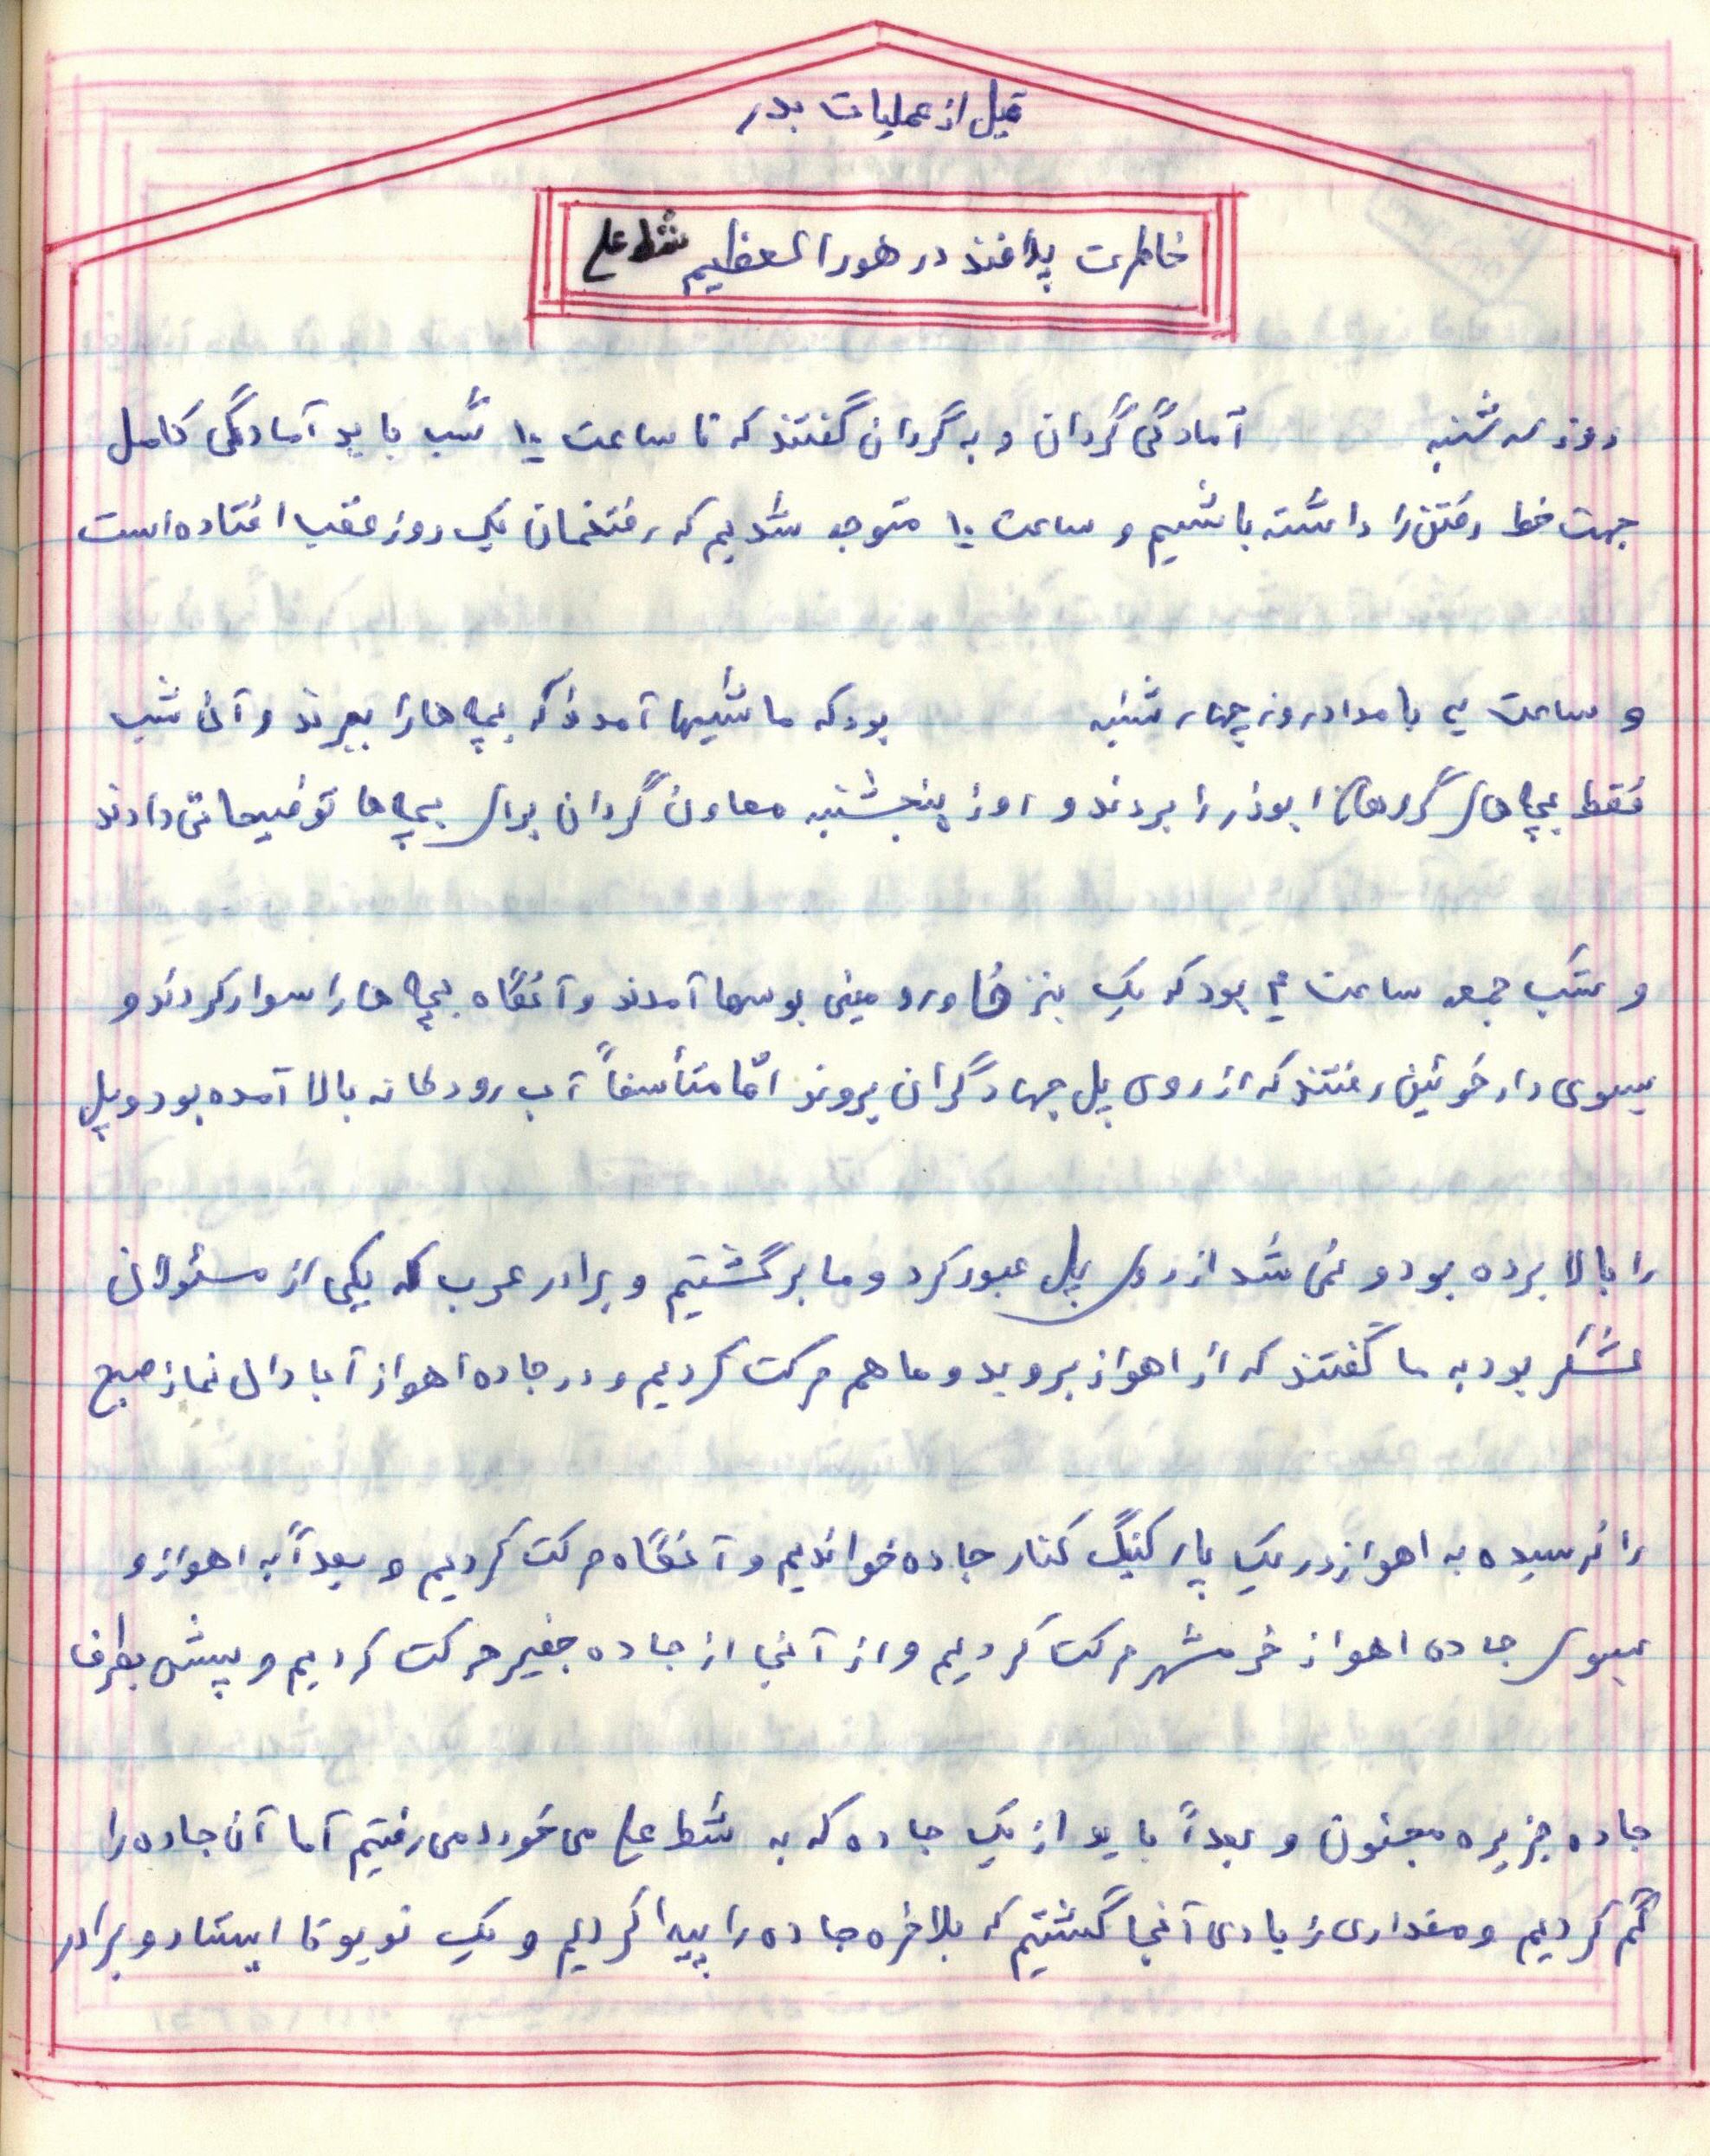 قبل از عملیات بدر
خاطرت پدافند در هورالعظیم شط علی
روز سه شنبه آمادگی گردان و به گردان گفتند که تا ساعت ۱۰ شب باید آمادگی کامل
جهت خط رفتن را داشته باشیم و ساعت ۱۰ متوجه شدیم که رفتنمان یک روز عقب افتاده است
و ساعت بامداد روز چهار شنبه بود که ماشینها آمدند که بچه ها را ببرند و آن شب
فقط بچه های گروهان ابوذر را بردند و روز پنجشنبه معاون گردان برای بچه ها توضیحاتی دادند
و شب جمعه ساعت بود که یک بنز خاور و مینی بوسها آمدند و آنگاه بچه ها را سوار کردند و
بسوی دارخوئین رفتند که از روی پل جهادگران بروند امّا متأسفاً آب رودخانه بالا آمده بود و پل
را بالا برده بود و نمی شد از روی پل عبور کرد و ما برگشتیم و برادر عرب که یکی از مسئولان
لشکر بود به ما گفتند که از اهواز بروید و ما هم حرکت کردیم و در جاده اهواز آبادان نماز صبح
را نرسیده به اهواز در یک پارکینگ کنار جاده خواندیم و آنگاه حرکت کردیم و بعداً به اهواز و
بسوی جاده اهواز خرمشهر حرکت کردیم و از آنجا از جاده جفیر حرکت کردیم و پیش بطرف
جاده جزیره مجنون و بعداً باید از یک جاده که به شط علی می خورد می رفتیم آما آن جاده را
گم کردیم و مقداری زیادی آنجا گشتیم که بلاخره جاده را پیدا کردیم و یک تویوتا ایستاد و برادر